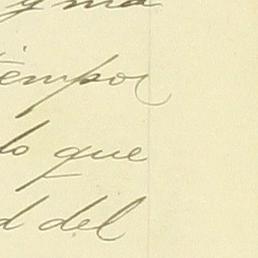 y ma
tempor
lo que
d del